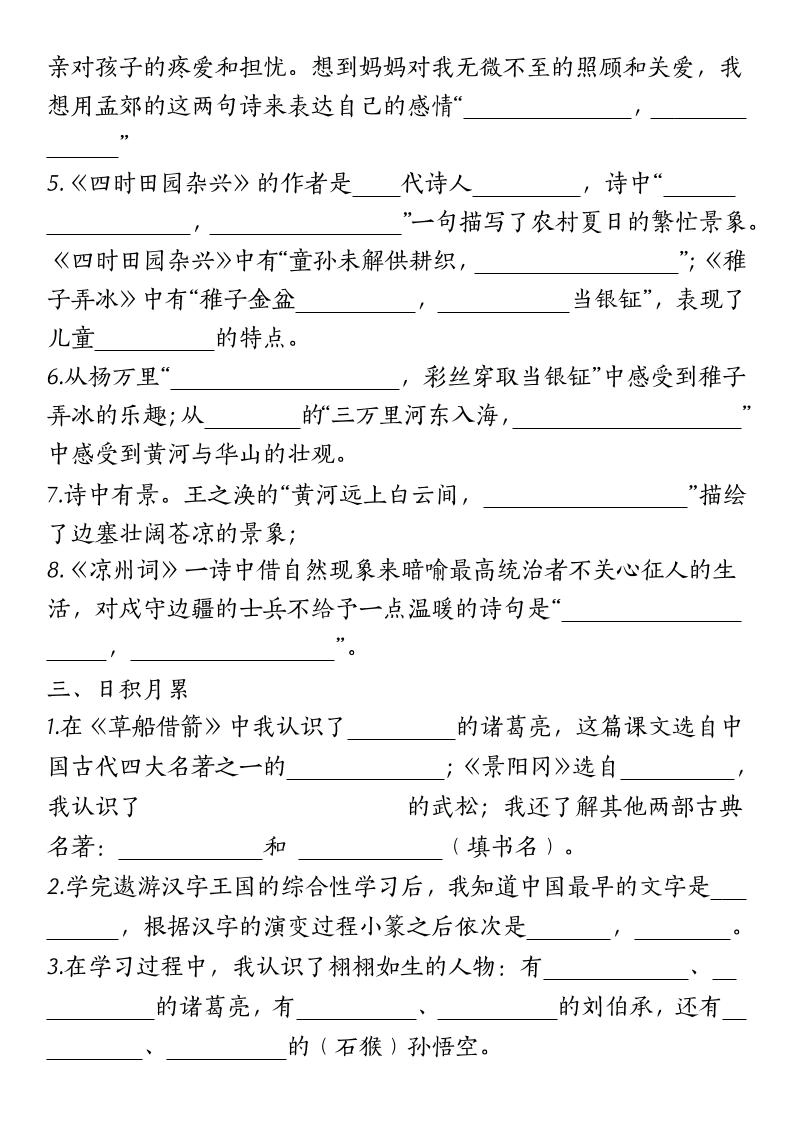 亲对孩子的疼爱和担忧。想到妈妈对我无微不至的照顾和关爱，我
想用孟郊的这两句诗来表达自己的感情“______________，________
______”
5.《四时田园杂兴》的作者是____代诗人_________，诗中“______
____________，________________”一句描写了农村夏日的繁忙景象。
《四时田园杂兴》中有“童孙未解供耕织，_________________”；《稚
子弄冰》中有“稚子金盆__________，___________当银钲”，表现了
儿童__________的特点。
6.从杨万里“___________________，彩丝穿取当银钲”中感受到稚子
弄冰的乐趣；从________的“三万里河东入海，___________________”
中感受到黄河与华山的壮观。
7.诗中有景。王之涣的“黄河远上白云间，_________________”描绘
了边塞壮阔苍凉的景象；
8.《凉州词》一诗中借自然现象来暗喻最高统治者不关心征人的生
活，对戍守边疆的士兵不给予一点温暖的诗句是“_______________
_____，_________________”。
三、日积月累
1.在《草船借箭》中我认识了_________的诸葛亮，这篇课文选自中
国古代四大名著之一的_____________；《景阳冈》选自_________，
我认识了 的武松；我还了解其他两部古典
名著：____________和 ____________（填书名）。
2.学完遨游汉字王国的综合性学习后，我知道中国最早的文字是___
______，根据汉字的演变过程小篆之后依次是_______，________。
3.在学习过程中，我认识了栩栩如生的人物：有____________、__
_________的诸葛亮，有__________、__________的刘伯承，还有__
________、__________的（石猴）孙悟空。